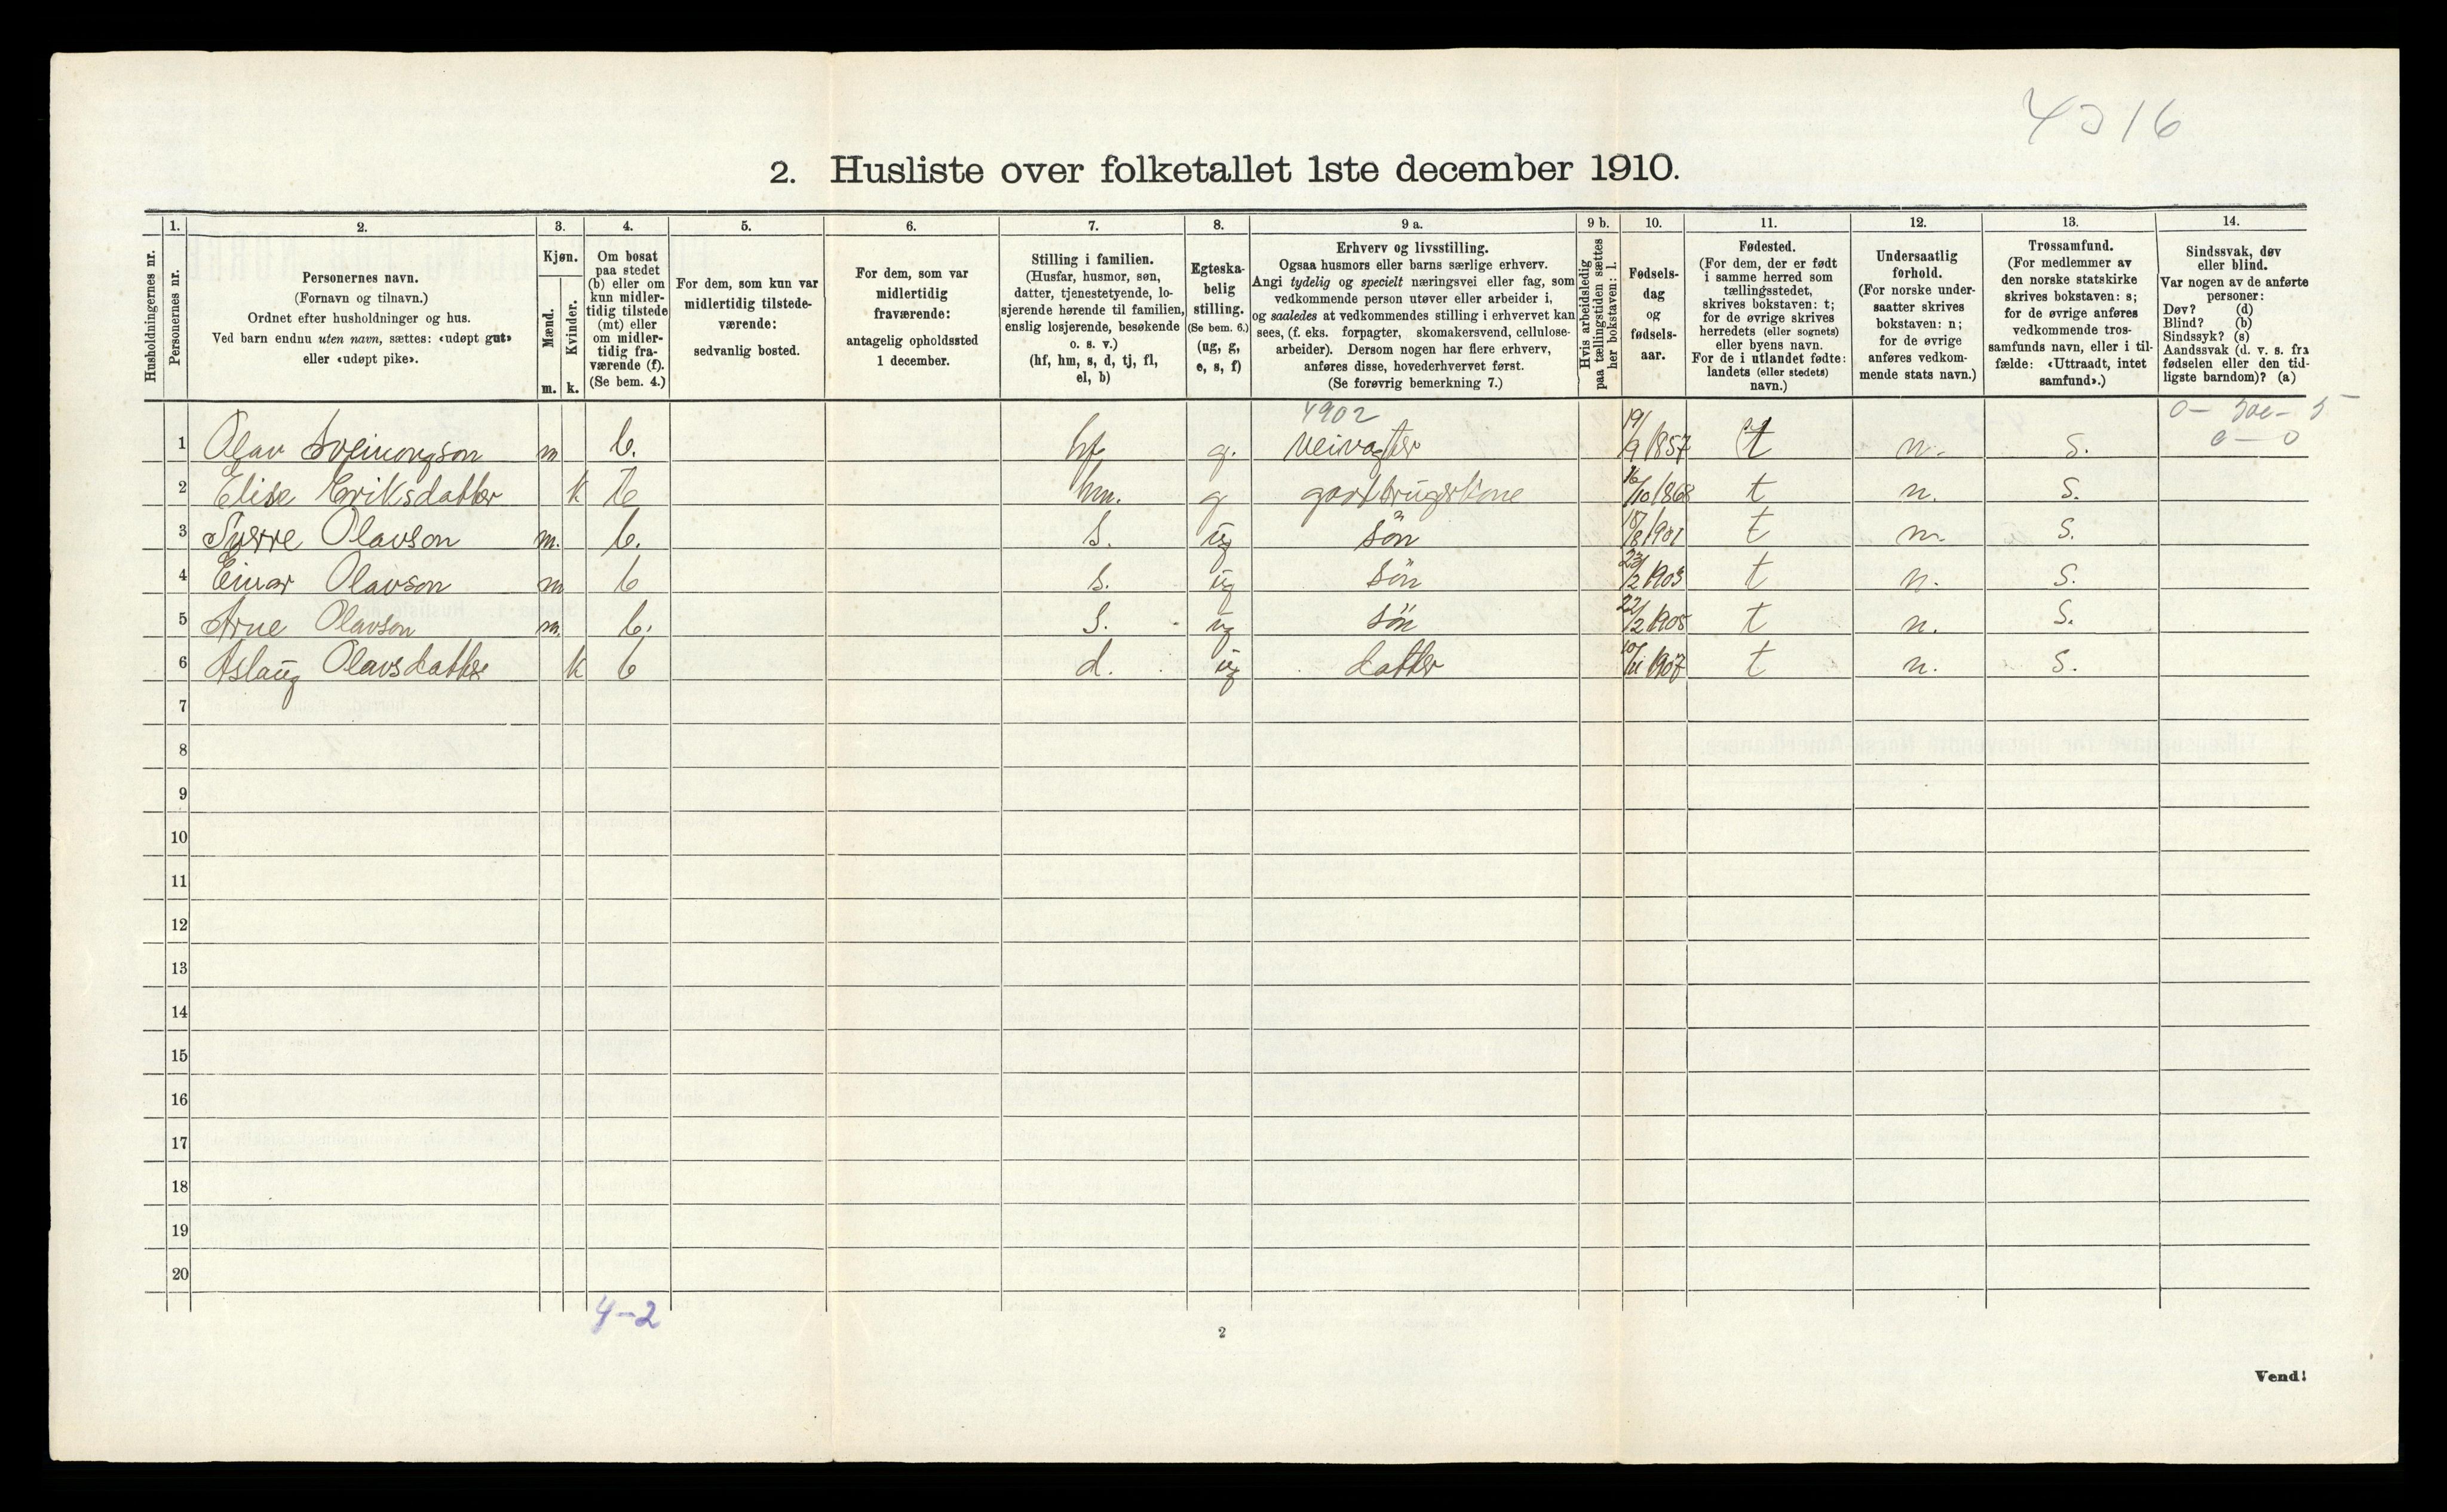 2. Husliste over folketallet 1ste december 1910.
Husholdningernes nr.
1.
Personernes nr.
2.
Personernes navn.
(Fornavn og tilnavn.)
Ordnet efter husholdninger og hus.
Ved barn endnu uten navn, sættes: «udøpt gut»
eller «udøpt pike».
3.
Kjøn.
Mænd.
Kvinder.
m. k.
4.
Om bosat
paa stedet
(b) eller om
kun midler-
tidig tilstede
(mt) eller
om midler-
tidig fra-
værende (f).
(Se bem. 4.)
5.
For dem, som kun var
midlertidig tilstede-
værende:
sedvanlig bosted.
6.
For dem, som var
midlertidig
fraværende:
antagelig opholdssted
1 december.
7.
Stilling i familien.
(Husfar, husmor, søn,
datter, tjenestetyende, lo-
sjerende hørende til familien,
enslig losjerende, besøkende
o. s. v.)
(hf, hm, s, d, tj, fl,
el, b)
8.
Egteska-
belig
stilling.
(Se bem. 6.)
(ug, g,
e, s, f)
9 a.
Erhverv og livsstilling.
Ogsaa husmors eller barns særlige erhverv.
Angi tydelig og specielt næringsvei eller fag, som
vedkommende person utøver eller arbeider i,
og saaledes at vedkommendes stilling i erhvervet kan
sees, (f. eks. forpagter, skomakersvend, cellulose-
arbeider). Dersom nogen har flere erhverv,
anføres disse, hovederhvervet først.
(Se forøvrig bemerkning 7.)
9 b.
Hvis arbeidsledig
paa tællingstiden sættes
her bokstaven: l.
10.
Fødsels-
dag
og
fødsels-
aar.
11.
Fødested.
(For dem, der er født
i samme herred som
tællingsstedet,
skrives bokstaven: t;
for de øvrige skrives
herredets (eller sognets)
eller byens navn.
For de i utlandet fødte:
landets (eller stedets)
navn.)
12.
Undersaatlig
forhold.
(For norske under-
saatter skrives
bokstaven: n;
for de øvrige
anføres vedkom-
mende stats navn.)
13.
Trossamfund.
(For medlemmer av
den norske statskirke
skrives bokstaven: s;
for de øvrige anføres
vedkommende tros-
samfunds navn, eller i til-
fælde: «Uttraadt, intet
samfund».)
14.
Sindssvak, døv
eller blind.
Var nogen av de anførte
personer:
Døv? (d)
Blind? (b)
Sindssyk? (s)
Aandssvak (d. v. s. fra
fødselen eller den tid-
ligste barndom)? (a)
4902
1 Olav Sveinongson m b. hf g. Veivogter 19/9 1857 t n. s.
0 — 0
2 Elise Eriksdatter k b hm. g gaardbrugerkone 16/10 1868 t n. s.
3 Sverre Olavson m. b. s. ug søn 18/8 1901 t n. s.
4 Einar Olavson m b s. ug søn 23/2 1903 t n. s.
5 Arne Olavson m. b. s. ug søn 22/2 1905 t n. s.
6 Aslaug Olavsdatter k b d. ug datter 10/11 1907 t n. s.
7
8
9
10
11
12
13
14
15
16
17
18
19
20
4-2
2
Vend!